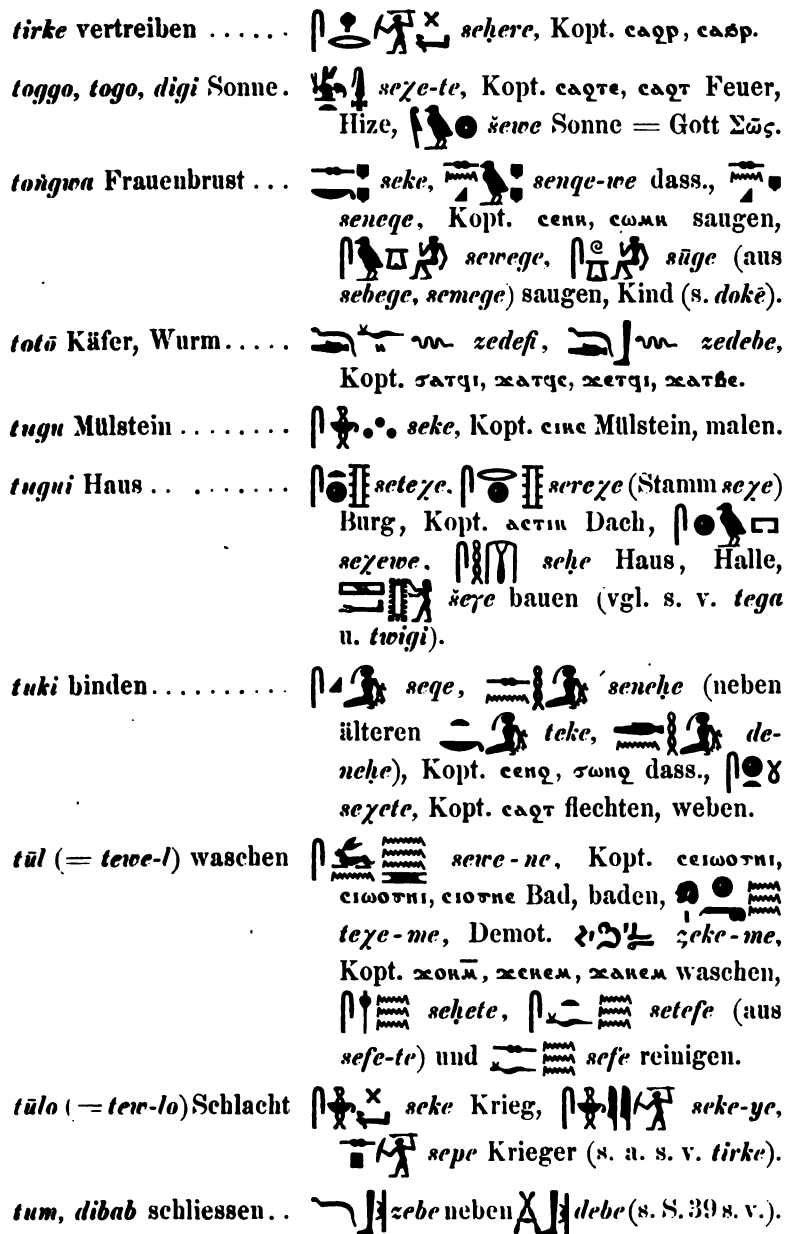 tirke vertreiben . . . . . . seḥere, Kopt. ⲥⲁϩⲣ,
toggo, togo, digi Sonne. seχe-te, Kopt. ⲥⲁϩⲧⲉ, ⲥⲁϩⲧ Feuer,
Hize, šewe Sonne = Gott Σῶς.
toṅgwa Frauenbrust . . . seke, senqe-we dass.,
seneqe, Kopt. ⲥⲉⲛⲕ, ⲥⲱⲙⲕ saugen,
sewege, sūge (aus
sebege, semege) saugen, Kind (s. dokē).
totō Käfer, Wurm. . . . . zedefi, zedebe,
Kopt. ϭⲁⲧϥⲓ, ϫⲁⲧϥⲉ, ϫⲉⲧϥⲓ, ϫⲁⲧⲃⲉ.
tugu Mülstein . . . . . . . . seke, Kopt. ⲥⲓⲕⲉ Mülstein, malen.
tugui Haus . . . . . . . . . seteχe, sereχe (Stamm seχe)
Burg, Kopt. ⲁⲥⲧⲓⲕ Dach,
seχewe, seḥe Haus, Halle,
šeγe bauen (vgl. s. v. tega
u. twigi).
tuki binden. . . . . . . . . . seqe, senehe (neben
älteren teke, de-
neḥe), Kopt. ⲥⲉⲛϩ, ϭⲱⲛϩ dass.,
seχete, Kopt. ⲥⲁϩⲧ flechten, weben.
tūl (= tewe-l) waschen sewe-ne, Kopt. ⲥⲉⲓⲱⲟⲩⲛⲓ,
ⲥⲓⲱⲟⲩⲛⲓ, ⲥⲓⲟⲟⲩⲛⲉ Bad, baden,
teχe-me, Demot. zeke-me,
Kopt. ϫⲟⲕⲙ̅, ϫⲉⲕⲉⲙ, ϫⲁⲕⲉⲙ waschen,
seḥete, setefe (aus
sefe-te) und sefe reinigen.
tūlo (= tew-lo) Schlacht seke Krieg, seke-ye,
sepe Krieger (s. a. s. v. tirke).
tum, dibab schliessen. . zebe neben debe (s. S. 39 s. v.).